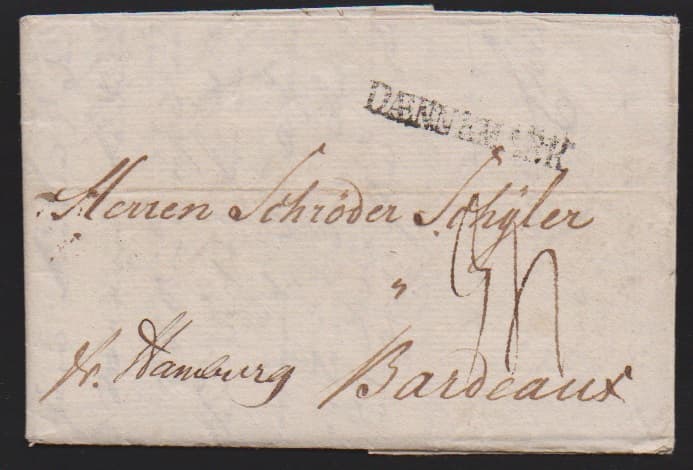 DÆNNEMARK
Herren Schröder Schÿler
"
pr. Hamburg Bardeaux